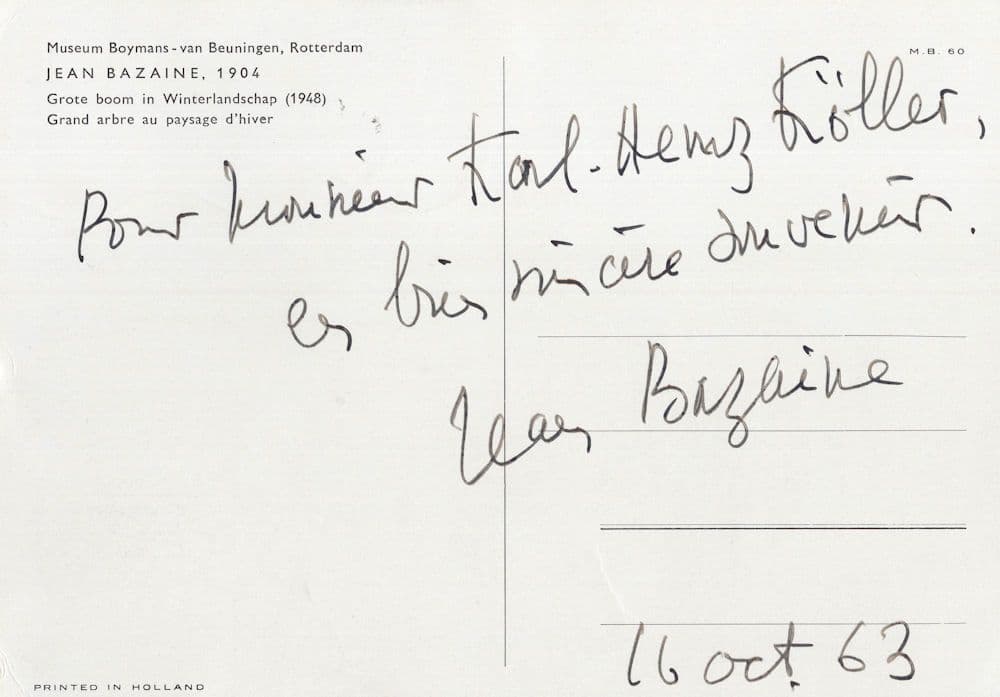 Museum Boymans-van Beuningen, Rotterdam
M.B. 60
JEAN BAZAINE, 1904
Grote boom in Winterlandschap (1948)
Grand arbre au paysage d'hiver
Pour Monsieur Karl-Heinz Köller,
en bien sincère souvenir.
Jean Bazaine
16 oct. 63
PRINTED IN HOLLAND